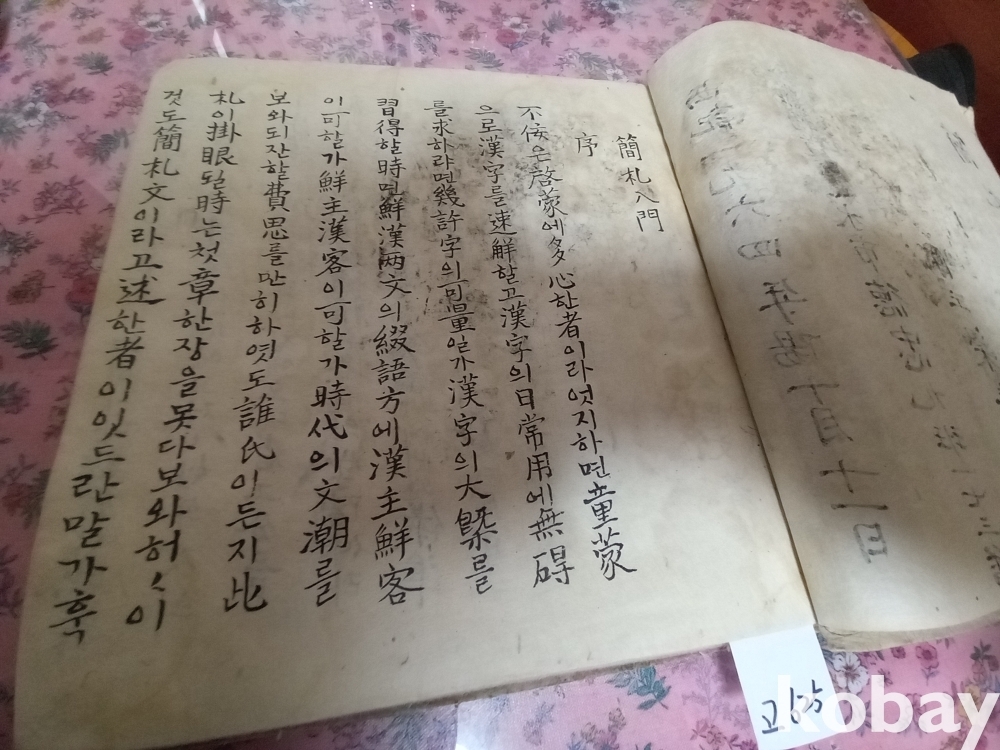 簡札入門
序
不佞은啓蒙에多心한者이라엇지하면童蒙
으로漢字를速解할고漢字의日常用에無碍
를求하랴면幾許字의可量일가漢字의大槩를
習得할時면鮮漢兩文의綴語方에漢主鮮客
이可할가鮮主漢客이可할가時代의文潮를
보와되잔할費思를만히하엿도誰氏이든지此
札이掛眼될時는첫章한장을못다보와허〻이
것도簡札文이라고述한者이잇드란말가훅
九六四年
十月十一日
고525
kobay